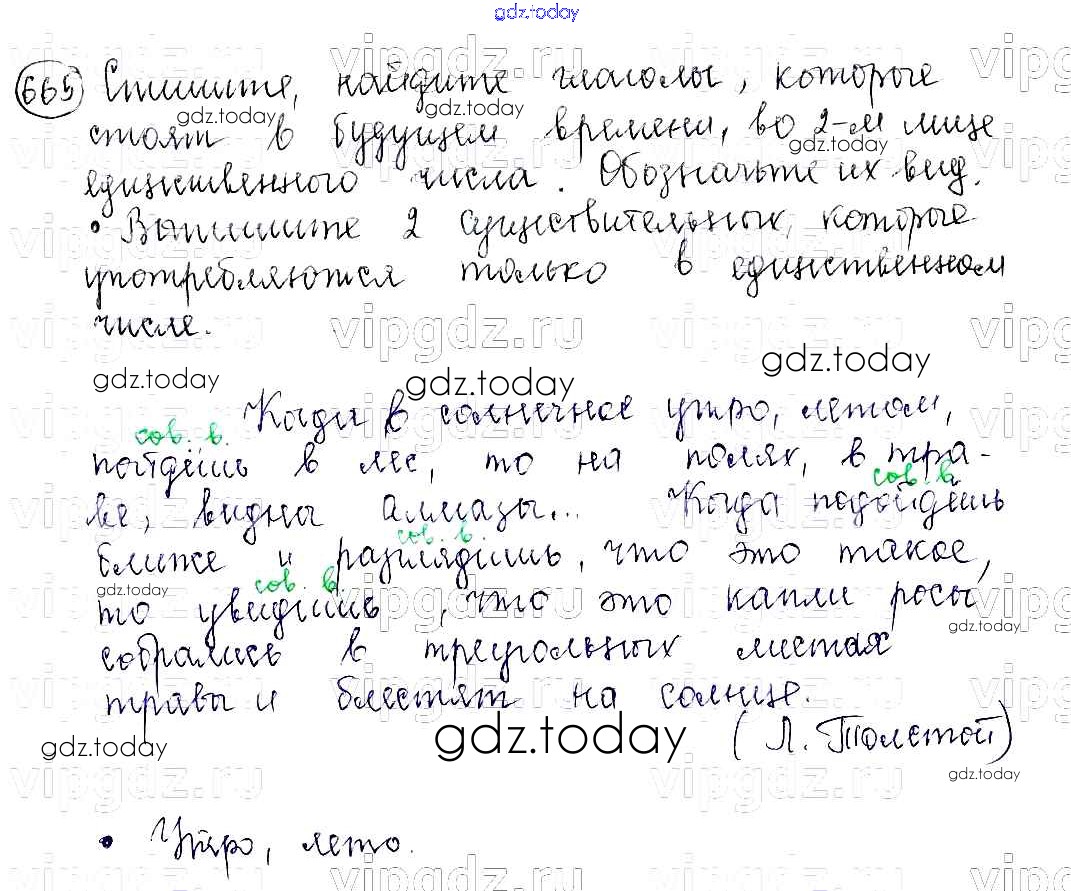 gdz.today
665 Спишите, найдите глаголы, которые
стоят в будущем времени, во 2-м лице
единственного числа. Обозначьте их вид.
• Выпишите 2 существительных, которые
употребляются только в единственном
числе.
vipgdz.ru
gdz.today gdz.today gdz.today
Когда в солнечное утро, летом,
сов. в.
пойдёшь в лес, то на полях, в тра-
сов. в
ве, видны алмазы... Когда подойдёшь
сов. в.
ближе и разглядишь, что это такое,
сов. в.
то увидишь, что это капли росы
собрались в треугольных листах
травы и блестят на солнце.
(Л. Толстой)
gdz.today gdz.today gdz.today
• Утро, лето.